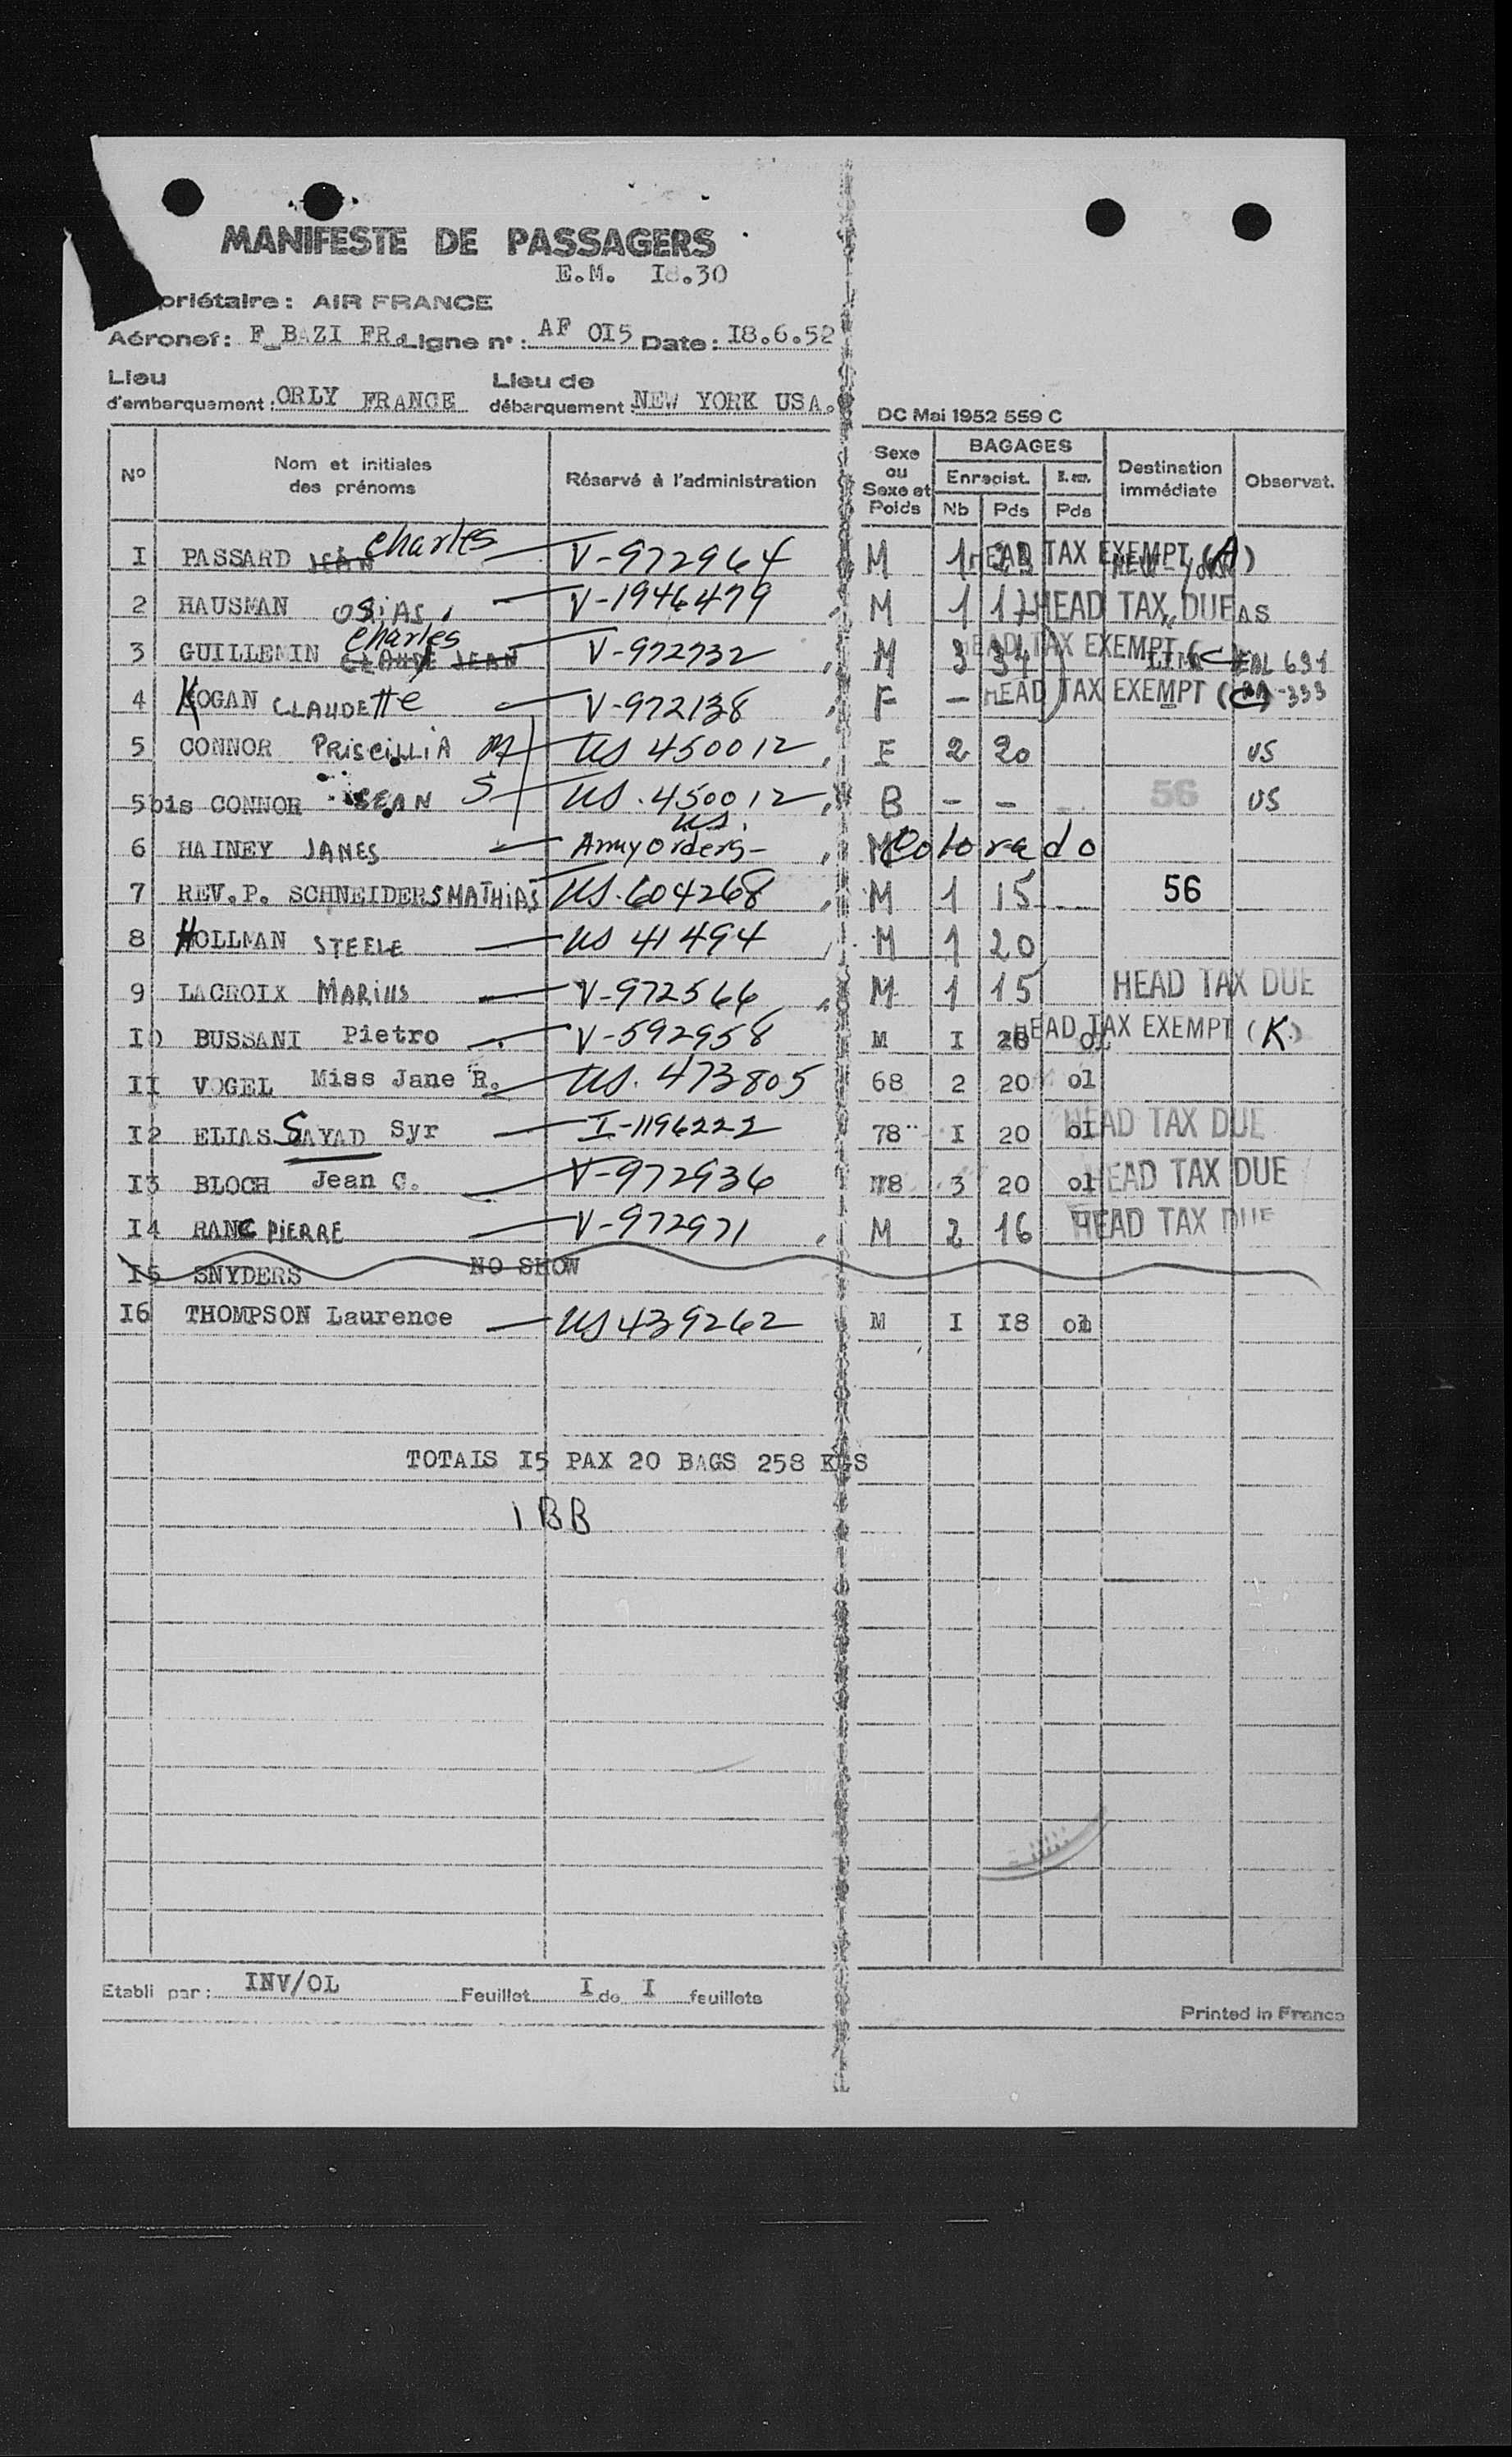 MANIFESTE DE PASSAGERS
E.M. I8.30
priétaire: AIR FRANCE
Aéronef: F_BAZI FR. Ligne n°: AF OI5 Date: I8.6.52
Lieu d'embarquement: ORLY FRANCE Lieu de débarquement: NEW YORK USA.
DC Mai 1952 559 C
N° Nom et initiales des prénoms Réservé à l'administration Sexe ou Sexe et Poids BAGAGES Enregist. Nb Pds Pds Destination immédiate Observat.
I PASSARD JEAN Charles V-972964 M 1 HEAD TAX EXEMPT (A) NEW-YORK
2 HAUSMAN OSIAS V-1946479 M 1 17 HEAD TAX DUE AS
3 GUILLEMIN Charles CLAUDE JEAN V-972732 M 3 34 HEAD TAX EXEMPT (C EAL 631
4 KOGAN CLAUDETTE V-972138 F - HEAD TAX EXEMPT (C) -333
5 CONNOR PRISCILLIA M US 450012 F 2 20 US
5bis CONNOR SEAN S US.450012 B - - 56 US
6 HAINEY JAMES US. Army Orders- M Colorado
7 REV.P. SCHNEIDERS MATHIAS US.604268 M 1 15 56
8 HOLLMAN STEELE US 41494 M 1 20
9 LACROIX MARIUS V-972566 M 1 15 HEAD TAX DUE
I0 BUSSANI Pietro V-592958 M I 20 HEAD TAX EXEMPT (K)
II VOGEL Miss Jane R. US. 473805 68 2 20 ol
I2 ELIAS SAYAD Syr I-1196222 78 I 20 ol HEAD TAX DUE
I3 BLOCH Jean C. V-972936 78 3 20 ol HEAD TAX DUE
I4 RANC PIERRE V-972971 M 2 16 HEAD TAX DUE
I5 SNYDERS NO SHOW
I6 THOMPSON Laurence US 439262 M I I8
TOTAIS I5 PAX 20 BAGS 258 KGS
1 BB
Etabli par: INV/OL Feuillet I de I feuillets
Printed in France